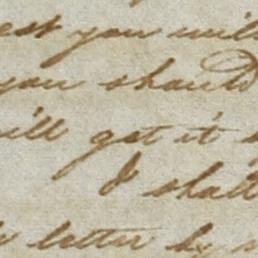 you will
you should
will get it
I shall
letter by